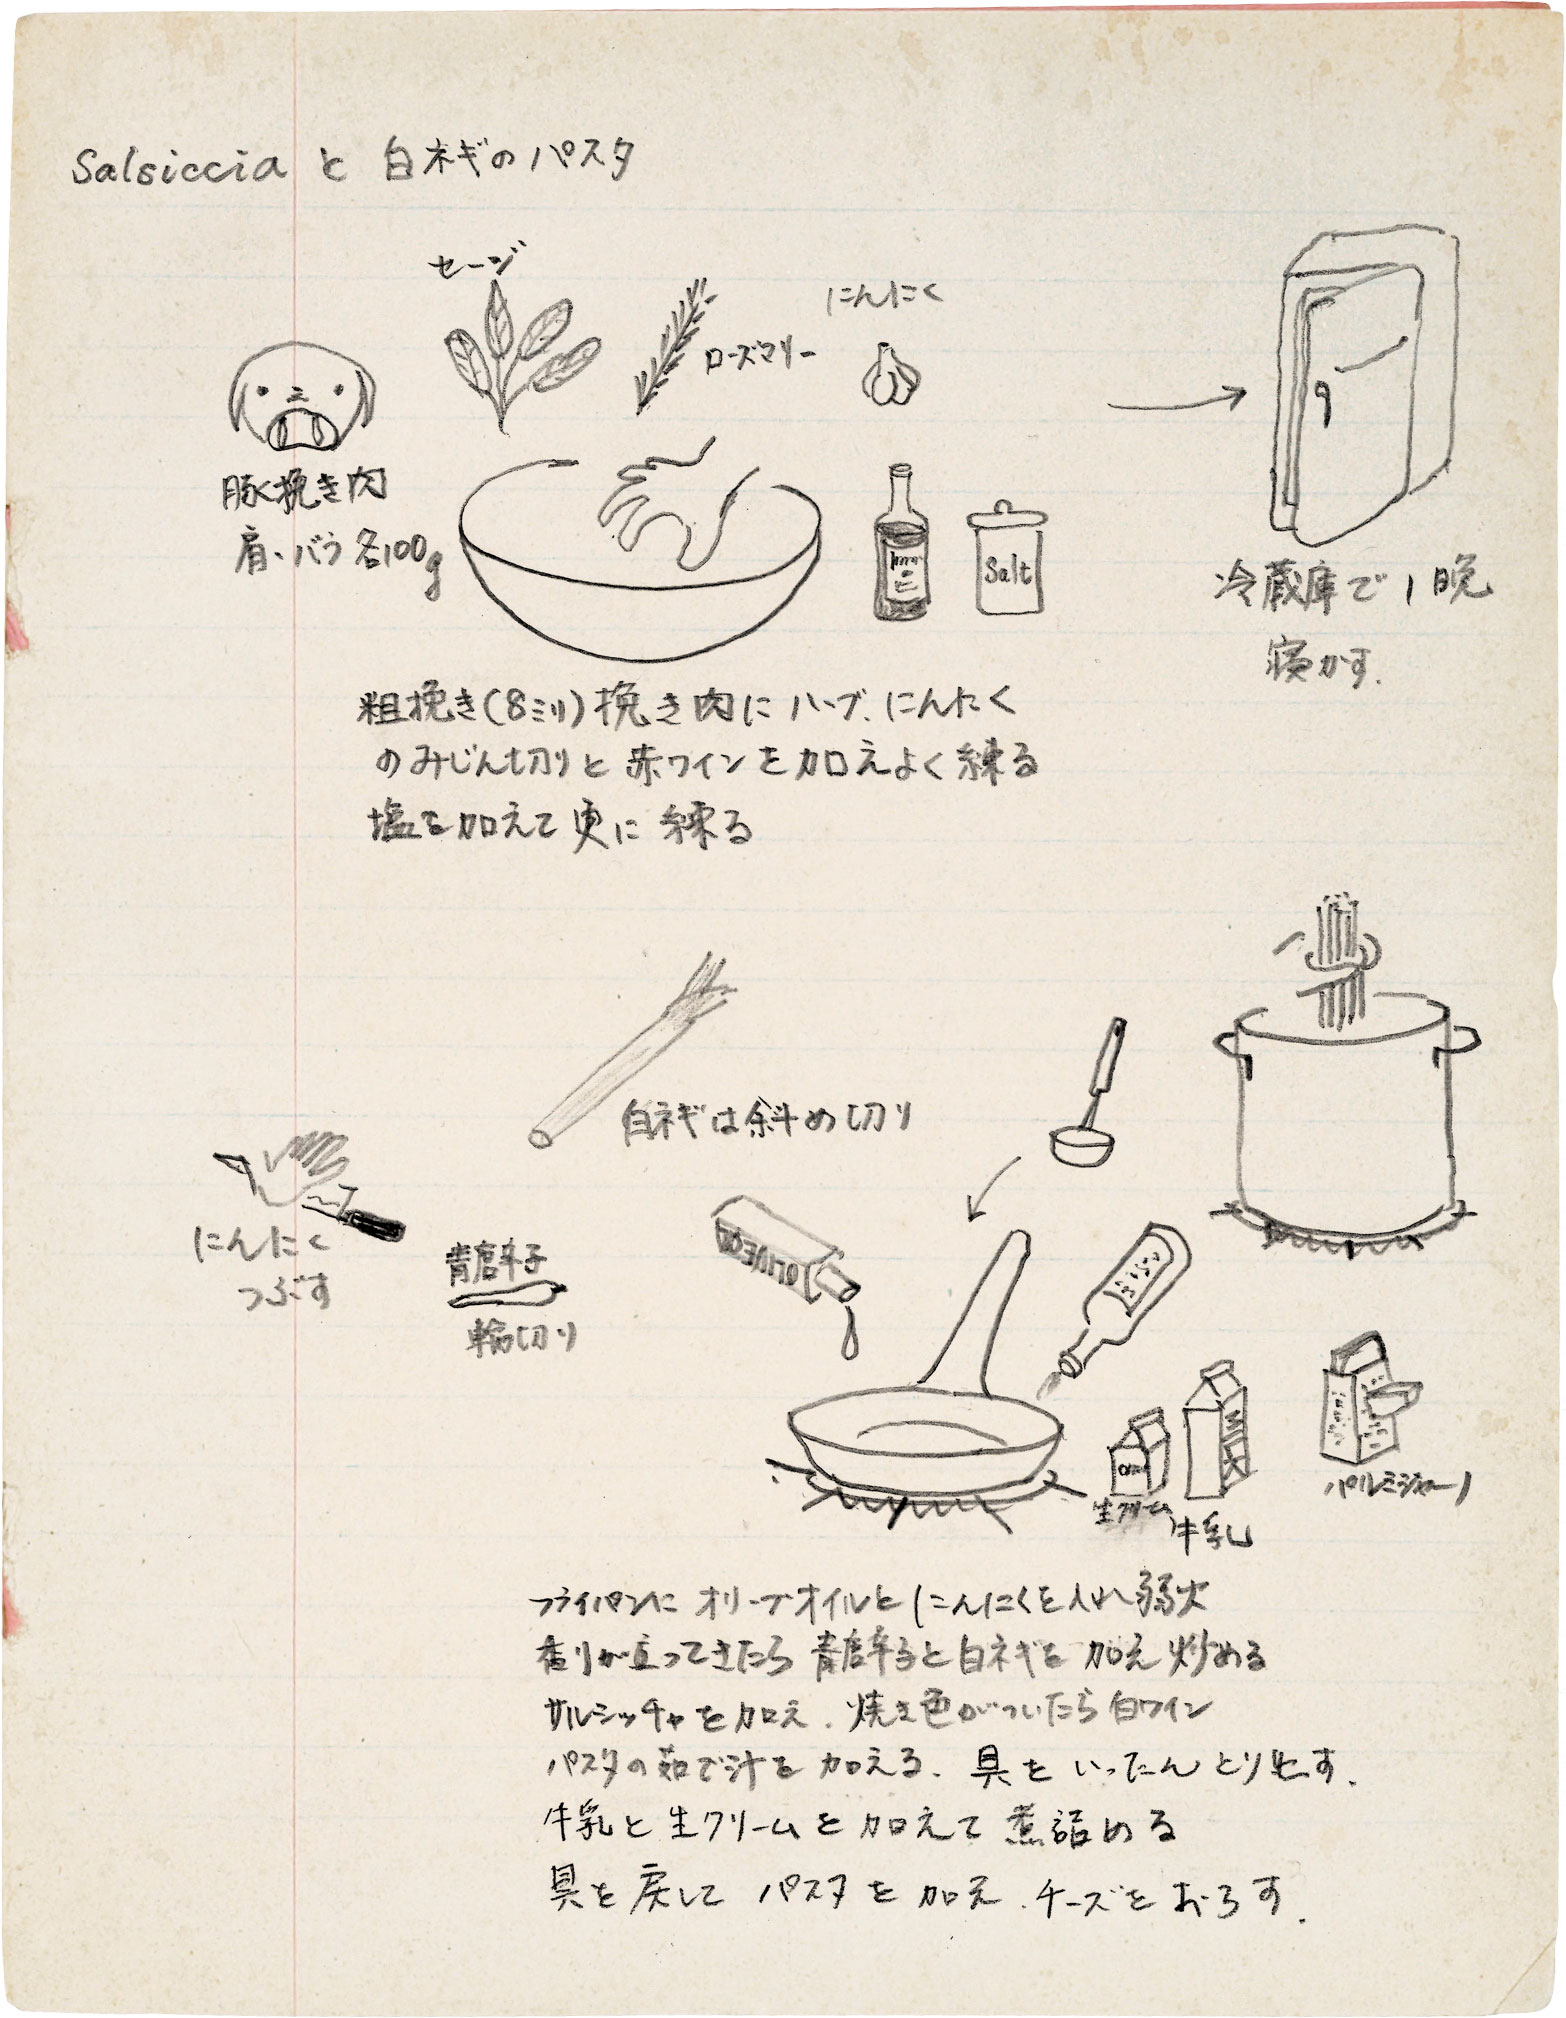 Salsicciaと白ネギのパスタ
セージ
ローズマリー
にんにく
豚挽き肉
肩、バラ各100g
Salt
冷蔵庫で1晩
寝かす.
粗挽き(8ミリ)挽き肉にハーブ、にんにく
のみじん切りと赤ワインを加えよく練る
塩を加えて更に練る
白ネギは斜め切り
にんにく
つぶす
青唐辛子
輪切り
OLIVE OIL
生クリーム
MILK
牛乳
パルミジャーノ
フライパンにオリーブオイルとにんにくを入れ弱火
香りが立ってきたら青唐辛子と白ネギを加え炒める
サルシッチャを加え、焼き色がついたら白ワイン
パスタの茹で汁を加える、具をいったんとり出す.
牛乳と生クリームを加えて煮詰める
具を戻してパスタを加え、チーズをおろす.